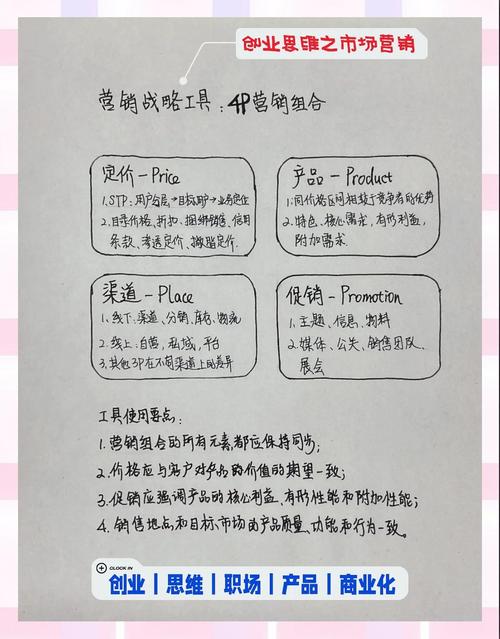 创业思维之市场营销
营销战略工具：4P营销组合
定价-Price
1.STP：用户分层→目标用户→业务定位
2.目录价格、折扣、捆绑销售、信用
条款、渗透定价、撇脂定价.
产品-Product
1.同价格区间相较于竞争者的优势
2.特色、核心需求，有形利益，
附加需求.
渠道-Place
1.线下：渠道、分销、库存、物流
2.线上：自营、私域、平台
3.其他3P在不同渠道上的差异
促销-Promotion
1.主题、信息、物料
2.媒体、公关、销售团队、
展会
工具使用要点：
1.营销组合的所有元素都应保持同步；
2.价格应与客户对产品的价值的期望一致；
3.促销应强调产品的核心利益、有形性能和附加性能；
4.销售地点和目标市场的产品质量、功能和行为一致。
CLOCK IN
创业｜思维｜职场｜产品｜商业化